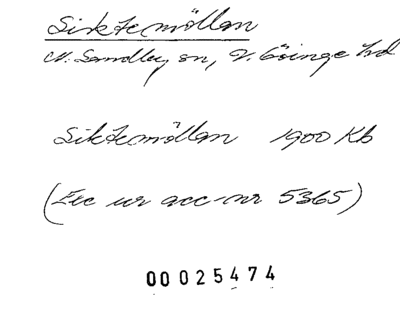 Siktemöllan
N. Sandby sn, V. Göinge hd
Siktemöllan 1900 Kb
(Exc ur acc-nr 5365)
00025474